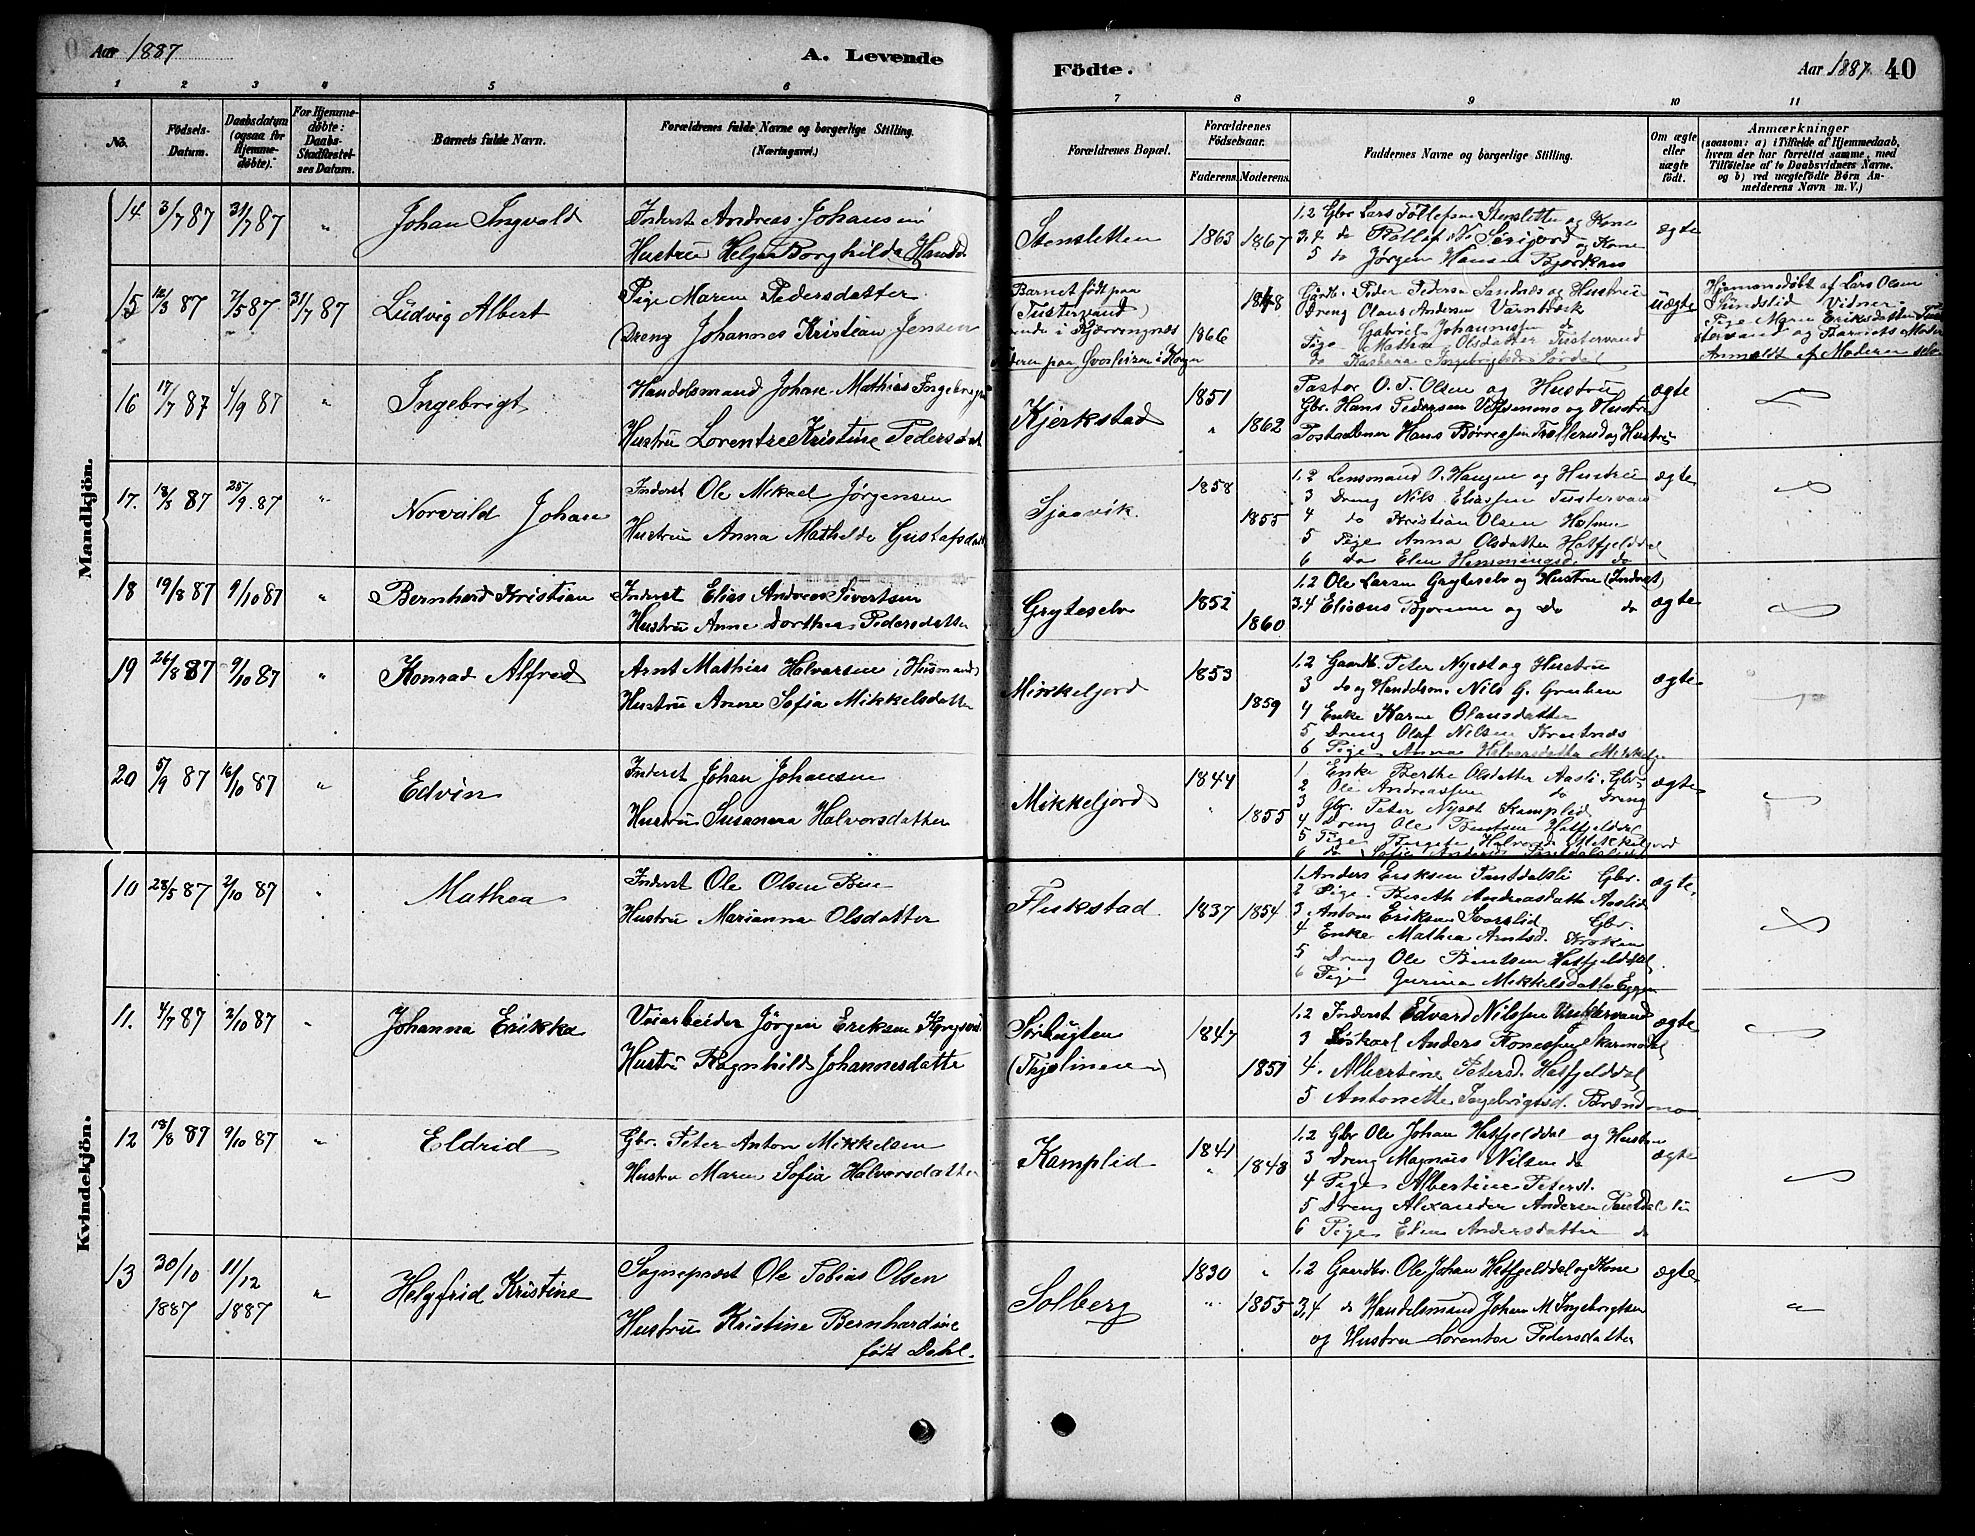 Aar 1887
A. Levende
Födte.
Aar 1887 40
1 2 3 4 5 6 7 8 9 10 11
No.
Födsels-Datum.
Daabsdatum (ogsaa for Hjemmedøbte).
For Hjemmedøbte: Daabs-Stadfæstelses Datum.
Barnets fulde Navn.
Forældrenes fulde Navne og borgerlige Stilling. (Næringsvei.)
Forældrenes Bopæl.
Forældrenes Födselsaar.
Faderens. Moderens.
Faddernes Navne og borgerlige Stilling.
Om ægte eller uægte født.
Anmærkninger (saasom: a) i Tilfælde af Hjemmedaab, hvem der har forrettet samme, med Tilföielse af to Daabsvidners Navne. og b) ved uægtefødte Børn Anmelderens Navn m. V.)
Mandkjön.
14 3/7 87 31/7 87 " Johan Ingvald
Inderst Andreas Johansen
Hustru Helga Borghilda
Stensletten 1863 1867
1.2 Gbr Lars Tollefsen Stensletten og Kone
3.4 do
5 do Jørgen Hansen
ægte
15 12/3 87 7/5 87 31/7 87 Ludvig Albert
Pige Maren Pedersdatter
(Dreng Johannes Kristian Jensen
Barnet født paa
Tustervand
1866 1848
Gaardb. Peder Pedersen Sandnæs og Hustru
Dreng Olaus Andersen Varntræsk
Gabriel Johannessen do
Pige Mathea Olsdatter Tustervand
uægte
Hjemmedøbt af Lars Olsen
Sundslid Vidner:
Pige Maren Eriksdatter
og Barnets Moder
Anmeldt af Moderen selv
16 17/7 87 4/9 87 " Ingebrigt
Handelsmand Johan Mathias Ingebrigtsen
Hustru Lorentze Kristine Pedersdat
Kjerkstad 1851 " 1862
Pastor O. T. Olsen og Hustru
Gbr. Hans Pedersen og Hustru
Hans Børresen og Hustru
ægte
17. 18/3 87 25/9 87 " Norvald Johan
Inderst Ole Mikael Jørgensen
Hustru Anna Mathilde Gustafsdatt
Sjaavik. 1858 1855
1.2 Lensmand O. Haugen og Hustru
3 Dreng Nils Eliassen Tustervand
4 do Kristian Olsen
5 Pige Anna Olsdatter Hatfjelddal
6 do Elen Hemmingsd. do
ægte
18 19/8 87 9/10 87 " Bernhard Kristian
Inderst Elias Andreas Sivertsen
Hustru Anne Dorthea Pedersdatter
Gryteselv 1852 1860
1.2 Ole Larsen Gryteselv og Hustru (Inderst)
3.4 Eliseus og Do do
ægte
19 26/8 87 9/10 87 " Konrad Alfred
Arnt Mathias Halvorsen (Husmand)
Hustru Anne Sofia Mikkelsdatter
Mikkeljord 1853 1859
1.2 Gaardb. Peter Nyset og Hustru
3 do og Handelsm. Nils G. Gruben
4 Enke Karen Olausdatter
5 Dreng Olaf Nilsen
6 Pige Anna Halvorsdatter Mikkelj.
ægte
20 5/9 87 16/10 87 " Edvin
Inderst Johan Johansen
Hustru Susanna Halvorsdatter
Mikkeljord 1844 " 1855
1 Enke Berthe Olsdatter Aasli Gbr.
2 Ole Andreassen do Dreng
3 Gbr. Peter Nyset Kamplid
4 Dreng Ole Bentsen Hatfjelddal
5 Pige Halvorsd. Mikkeljord
6 do Sofie Andersd.
ægte
Kvindekjön.
10 28/5 87 2/10 87 " Mathea
Inderst Ole Olsen
Hustru Marianna Olsdatter
Flukstad 1837 1854
1 Anders Eriksen Pantdalsli Gbr.
2 Pige Andreasdatter Aaslid
3 Anton Eriksen Gbr.
4 Enke Mathea Arntsd. Kroken
5 Dreng Ole Bentsen Hatfjelddal
6 Pige Gurina Mikkelsdatter Eggen
ægte
11. 4/7 87 2/10 87 " Johanna Erikka
Veiarbeider Jørgen Eriksen
Hustru Ragnhild Johannesdatter
Sørbugten 1847 1851
1.2 Inderst Edvard Nilssen
3 Anders Skarmodal
4. Albertine Petersd. Hatfjelddal
5 Antonette Ingebrigtsd. Brændmo
ægte
12 18/8 87 9/10 87 " Eldrid
Gbr. Peter Anton Mikkelsen
Hustru Maren Sofia Halvorsdatter
Kamplid 1841 " 1848
1.2 Gbr Ole Johan Hatfjelddal og Hustru
3 Dreng Magnus Nilsen do
4 Pige Albertine Petersd.
5 Dreng Alexander Andersen Pantdalsli
6 Pige Elen Andersdatter do
ægte
13 30/10 1887 11/12 1887 " Helgfrid Kristine
Sogneprest Ole Tobias Olsen
Hustru Kristine Bernhardine
født Dahl.
Solberg 1830 " " 1855
1.2 Gaardbr. Ole Johan Hatfjelddal og Kone
3,4 do Handelsmand Johan M. Ingebrigtsen
og Hustru Lorentze Pedersdatter
ægte "